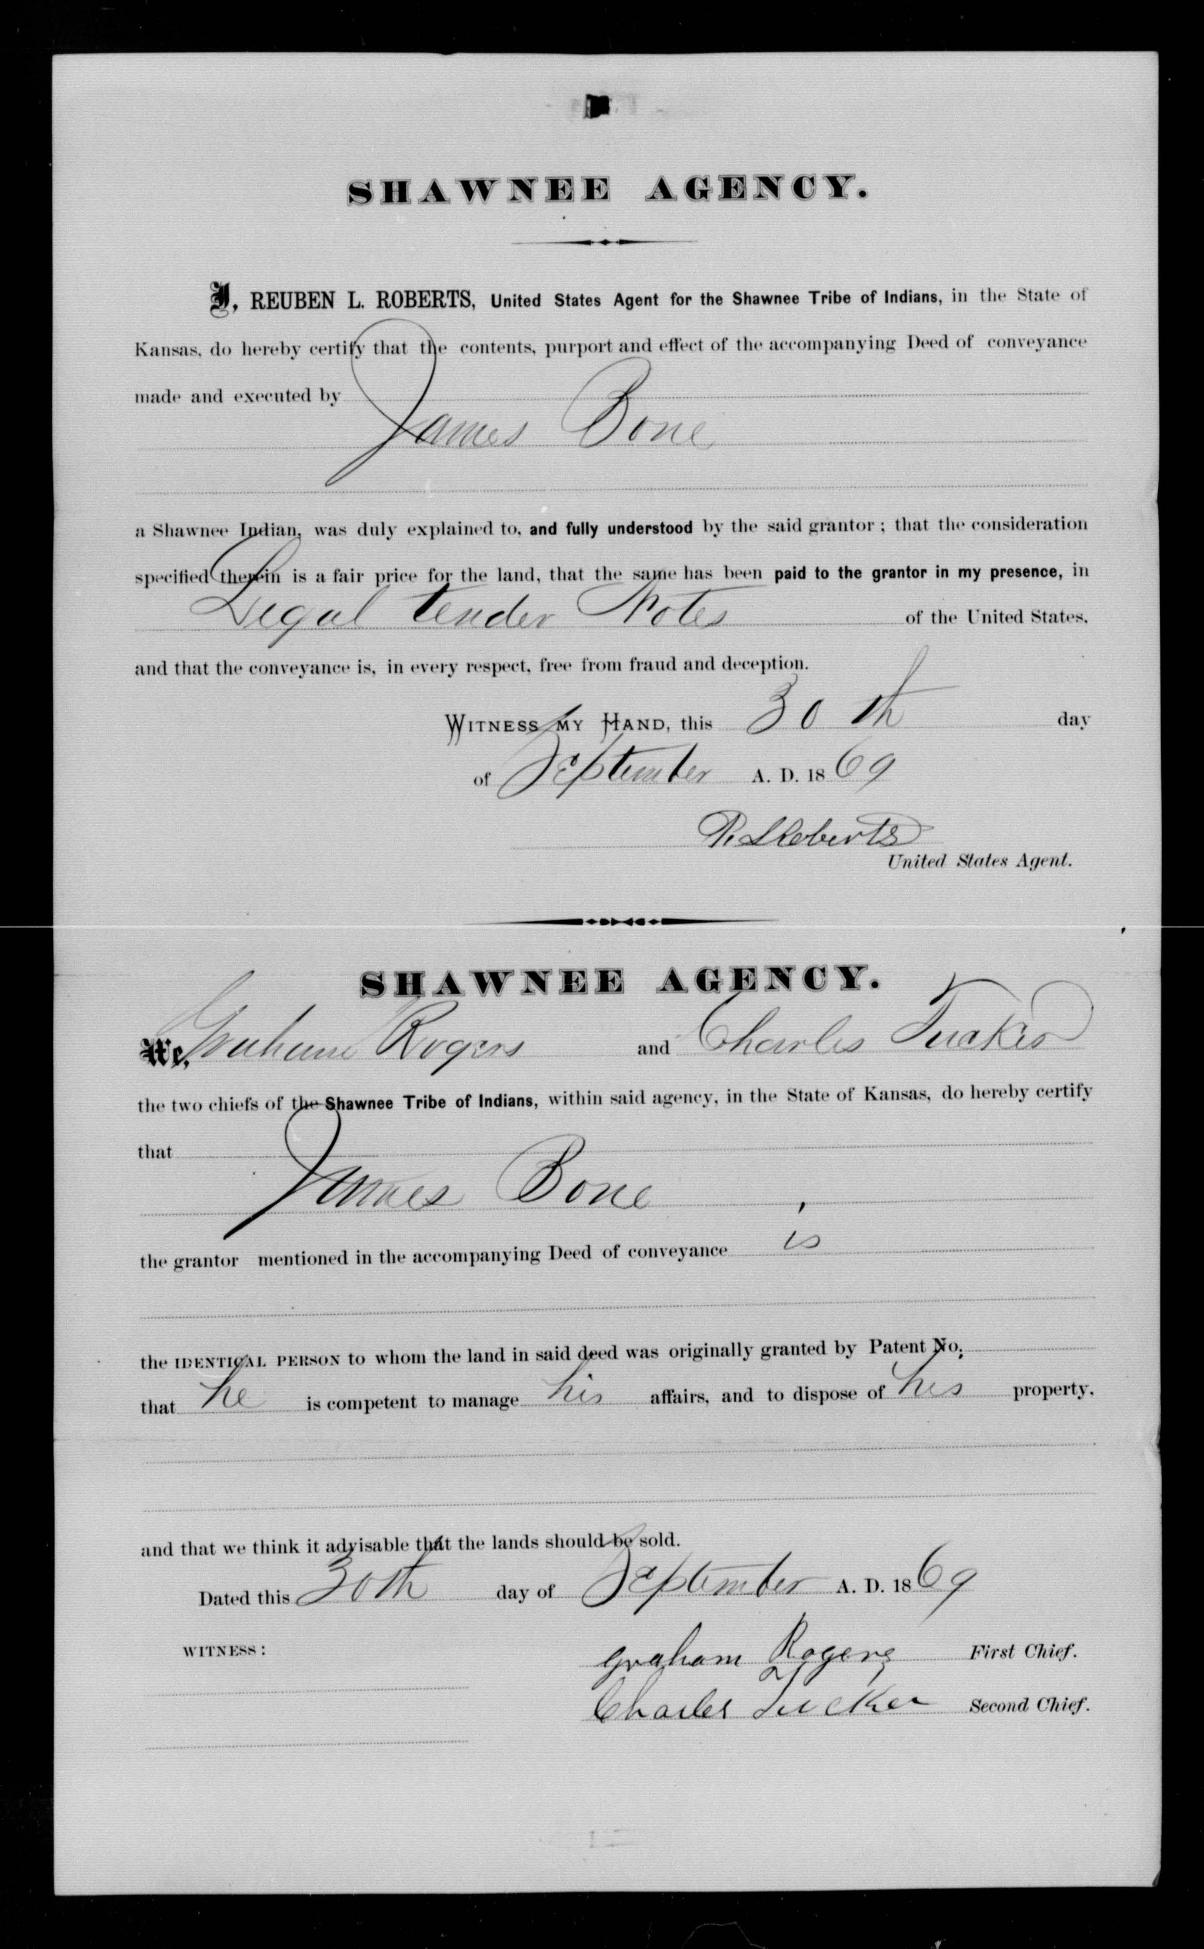 SHAWNEE AGENCY.
I, REUBEN L. ROBERTS, United States Agent for the Shawnee Tribe of Indians, in the State of
Kansas, do hereby certify that the contents, purport and effect of the accompanying Deed of conveyance
made and executed by
James Bone
a Shawnee Indian, was duly explained to, and fully understood by the said grantor; that the consideration
specified therein is a fair price for the land, that the same has been paid to the grantor in my presence, in
Legal tender Notes of the United States,
and that the conveyance is, in every respect, free from fraud and deception.
WITNESS MY HAND, this 30th day
of September A. D. 1869
R. L Roberts
United States Agent.
SHAWNEE AGENCY.
We, Graham Rogers and Charles Tucker
the two chiefs of the Shawnee Tribe of Indians, within said agency, in the State of Kansas, do hereby certify
that
James Bone
the grantor mentioned in the accompanying Deed of conveyance is
the IDENTICAL PERSON to whom the land in said deed was originally granted by Patent No.
that he is competent to manage his affairs, and to dispose of his property,
and that we think it advisable that the lands should be sold.
Dated this 30th day of September A. D. 1869
WITNESS:
Graham Rogers First Chief.
Charles Tucker Second Chief.